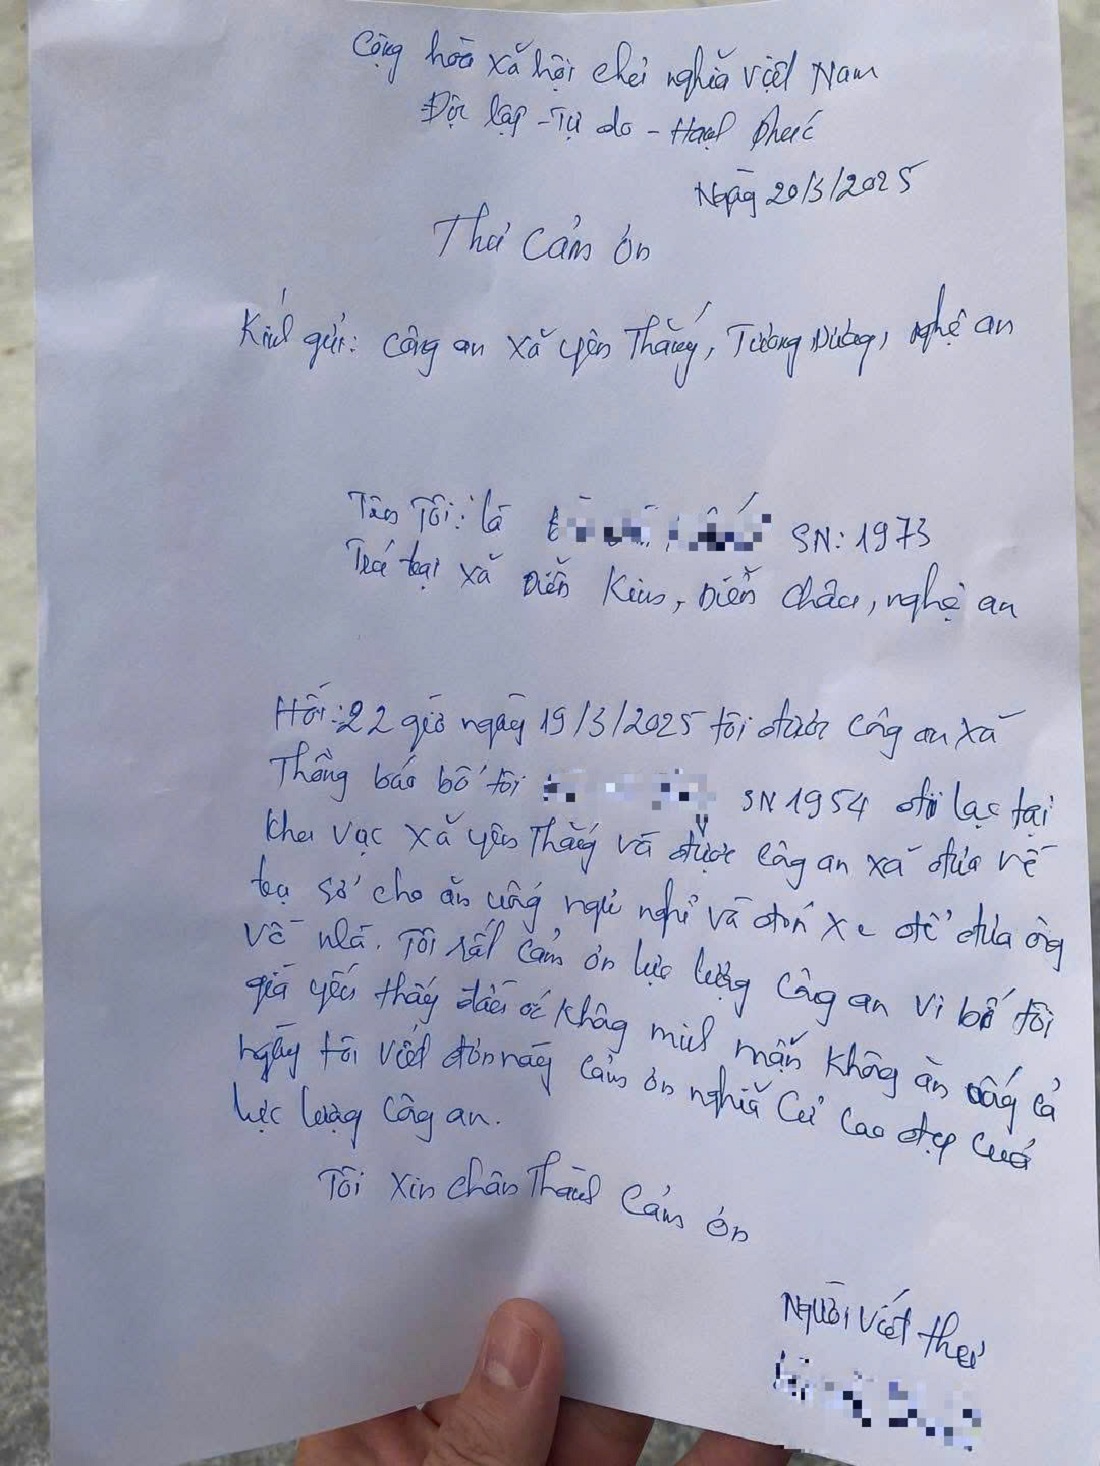 Cộng hòa xã hội chủ nghĩa việt Nam
Độc lập - Tự do - Hạnh phúc
Ngày 20/3/2025
Thư Cảm ơn
Kính gửi: Công an xã yên Thắng, Tương Dương, nghệ an
Tên Tôi: là SN: 1973
Trú tại xã Diễn Kim, Diễn Châu, nghệ an
Hồi: 22 giờ ngày 19/3/2025 tôi được công an xã
Thông báo bố tôi SN 1954 đi lạc tại
khu vực xã yên Thắng và được công an xã đưa về
trụ sở cho ăn uống ngủ nghỉ và đón xe để đưa ông
về nhà. Tôi rất cảm ơn lực lượng công an vì bố tôi
già yếu thấy đầu óc không minh mẫn không ăn uống cả
ngày tôi viết đơn này cảm ơn nghĩa cử cao đẹp của
lực lượng công an.
Tôi xin chân Thành cảm ơn
Người viết thư